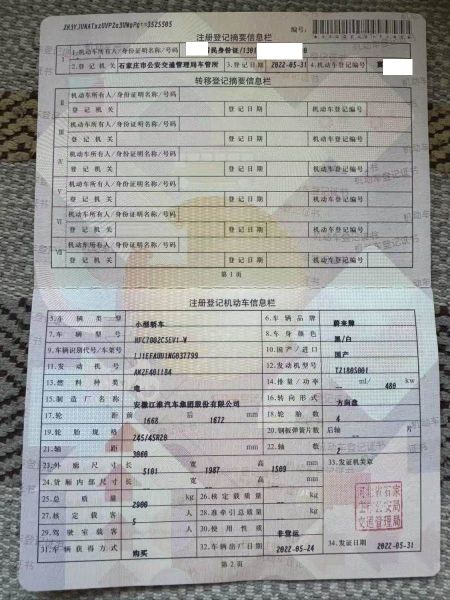 JH3YJUNATxzUVP2o3UNgPgt=3525505
编号:
注册登记摘要信息栏
I 1.机动车所有人/身份证明名称/号码 民身份证/1301 0
2.登记机关 石家庄市公安交通管理局车管所 3.登记日期 2022-05-31 4.机动车登记编号 冀
转移登记摘要信息栏
II 机动车所有人/身份证明名称/号码
登记机关 登记日期 机动车登记编号
III 机动车所有人/身份证明名称/号码
登记机关 登记日期 机动车登记编号
IV 机动车所有人/身份证明名称/号码
登记机关 登记日期 机动车登记编号
V 机动车所有人/身份证明名称/号码
登记机关 登记日期 机动车登记编号
VI 机动车所有人/身份证明名称/号码
登记机关 登记日期 机动车登记编号
VII 机动车所有人/身份证明名称/号码
登记机关 登记日期 机动车登记编号
第 1 页
注册登记机动车信息栏
5.车辆类型 小型轿车 6.车辆品牌 蔚来牌
7.车辆型号 HFC7002CSEV1-W 8.车身颜色 黑/白
9.车辆识别代号/车架号 LJ1EFAUU1NG037799 10.国产/进口 国产
11.发动机号 12.发动机型号 TZ180S001
13.燃料种类 电 14.排量/功率 ml/ 480 kw
15.制造厂名称 安徽江淮汽车集团股份有限公司 16.转向形式 方向盘
17.轮距 前 1668 后 1672 mm 18.轮胎数 4
19.轮胎规格 245/45R20 20.钢板弹簧片数 后轴 片
21.轴距 3060 mm 22.轴数 2
23.外廓尺寸 长 5101 宽 1987 高 1509 mm 33.发证机关章
24.货厢内部尺寸 长 宽 高 mm
25.总质量 2900 kg 26.核定载质量 kg
27.核定载客 5 人 28.准牵引总质量 kg
29.驾驶室载客 人 30.使用性质 非营运
31.车辆获得方式 购买 32.车辆出厂日期 2022-05-24 34.发证日期 2022-05-31
河北省石家
庄市公安局
交通管理局
第 2 页